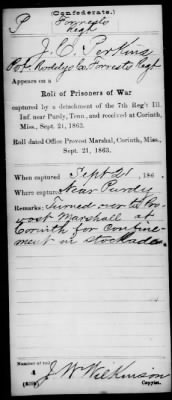 (Confederate.)
P Forrests
Regt
J. C. Perkins
Pvt, Roddy's Co, Forrests Regt
Appears on a
Roll of Prisoners of War
captured by a detachment of the 7th Reg't Ill.
Inf. near Purdy, Tenn., and received at Corinth,
Miss., Sept. 21, 1863.
Roll dated Office Provost Marshal, Corinth, Miss.,
Sept. 21, 1863.
When captured Sept 21, 186 .
Where captured Near Purdy
Remarks: Turned over to Pro-
vost Marshall at
Corinth for confine-
ment in stockade.
Number of roll:
4
J. W. Wilkinson
Copyist.